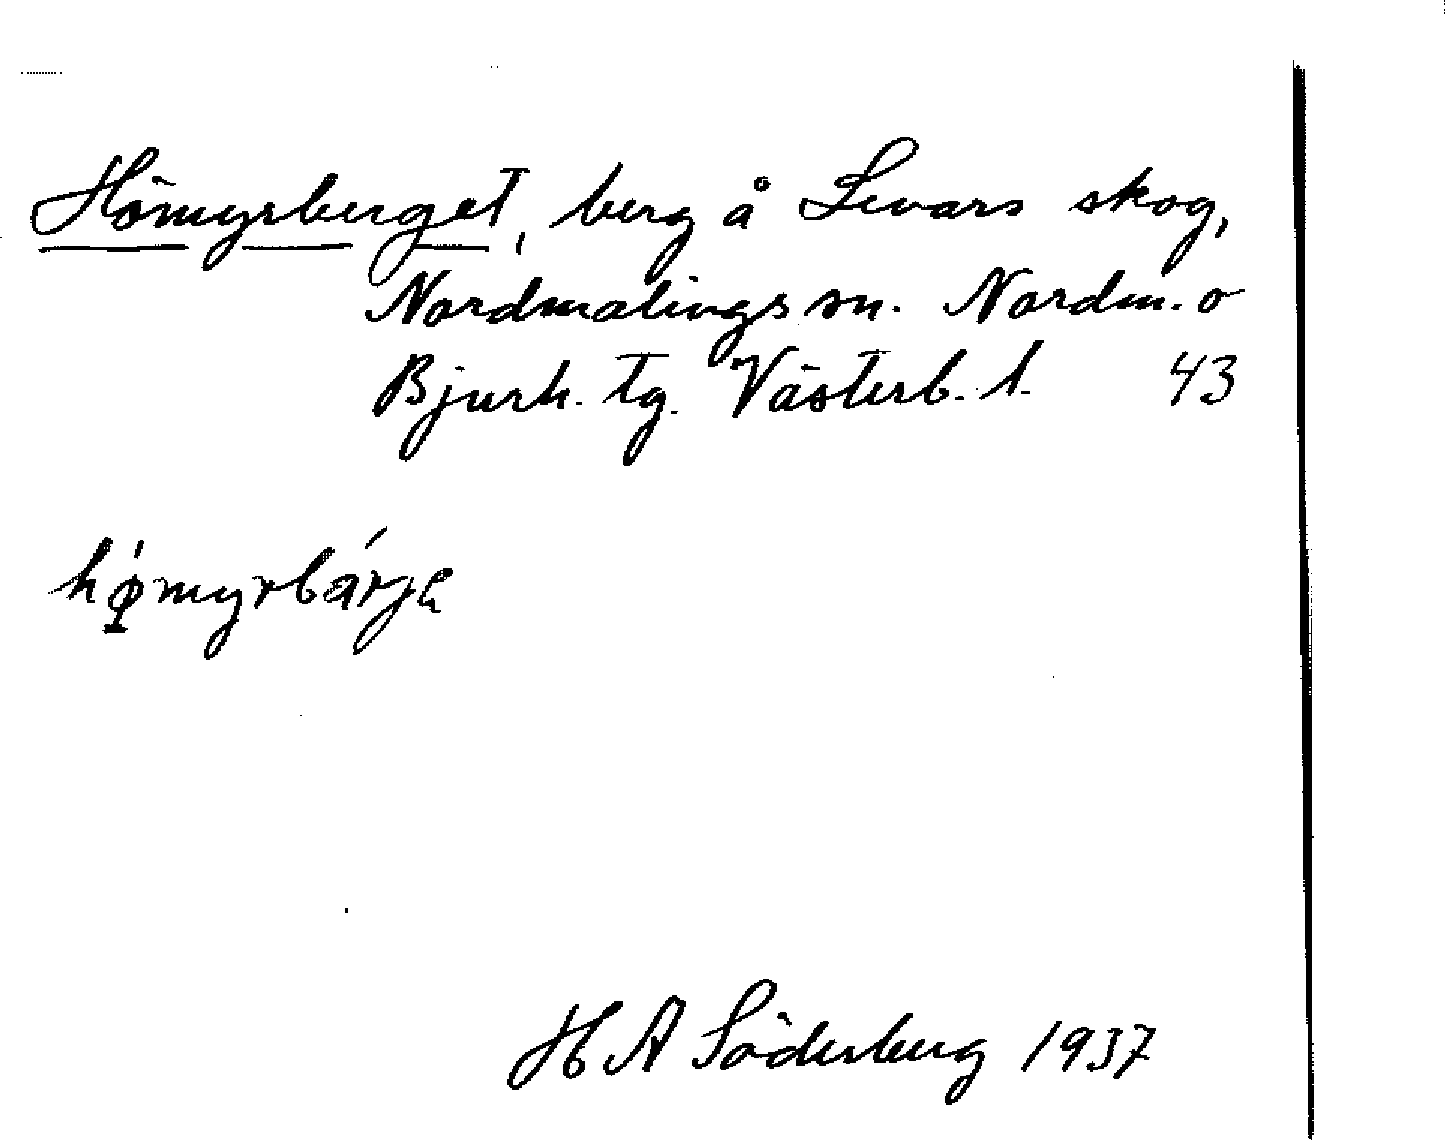 Hömyrberget, berg å Levars skog,
Nordmalings sn. Nordm. o
Bjurh. tg. Västerb. l. 43
hǿ̱myrbárjə
H A Söderberg 1937